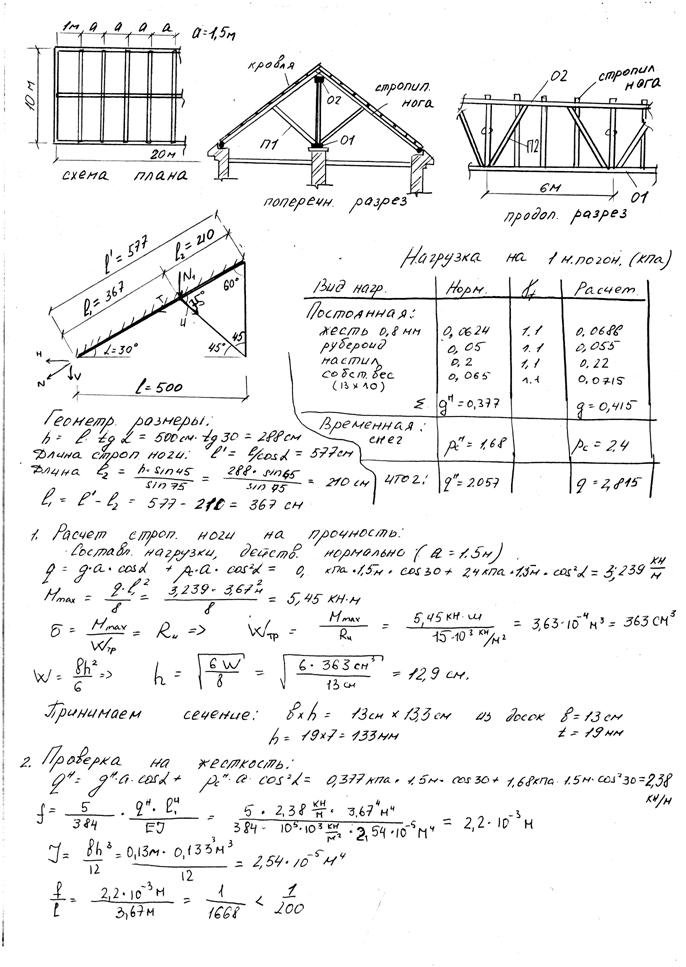 1м a a a a a=1,5м
10м
20м
схема плана
кровля
стропил. нога
О2
П1
О1
поперечн. разрез
О2
стропил нога
П2
6м
О1
продол. разрез
l' = 577
l₂ = 210
l₁ = 367
N₁
35°
60°
45
45°
α=30°
H
N
V
l=500
Нагрузка на 1 м.погон. (кПа)
Вид нагр. Норм. γf Расчет.
Постоянная:
жесть 0,8 мм 0,0624 1.1 0,0686
рубероид 0,05 1.1 0,055
настил 0,2 1,1 0,22
собст. вес 0,065 1.1 0,0715
(13×10)
Σ gᴴ=0,377 g=0,415
Временная:
снег pcᴴ=1,68 pc=2.4
итог: qᴴ=2.057 q=2,815
Геометр. размеры:
h = l · tg α = 500см · tg30 = 288см
Длина строп ноги: l' = l/cosα = 577см
Длина l₂ = h·sin45 / sin75 = 288·sin45 / sin75 = 210 см
l₁ = l' - l₂ = 577 - 210 = 367 см
1. Расчет строп. ноги на прочность:
Составл. нагрузки, действ. нормально (a = 1.5м)
q = g·a·cosα + pc·a·cos²α = 0, кПа·1,5м·cos30 + 2,4кПа·1,5м·cos²α = 3,239 кН/м
Mmax = q·l₁²/8 = 3,239·3,67²м/8 = 5,45 кН·м
σ = Mmax/Wтр = Rи => Wтр = Mmax/Rи = 5,45 кН·м / 15·10³ кН/м² = 3,63·10⁻⁴ м³ = 363 см³
W = bh²/6 => h = √(6W/b) = √(6·363см³/13см) = 12,9 см.
Принимаем сечение: b×h = 13см × 13,3см из досок b=13см
h = 19×7 = 133мм t = 19мм
2. Проверка на жесткость:
qᴴ = gᴴ·a·cosα + pcᴴ·a·cos²α = 0,377кПа·1.5м·cos30 + 1,68кПа·1.5м·cos²30 = 2,38 кН/м
f = 5/384 · qᴴ·l₁⁴/EJ = 5·2,38 кН/м·3,67⁴м⁴ / 384·10⁵·10³ кН/м²·2,54·10⁻⁵м⁴ = 2,2·10⁻³м
J = bh³/12 = 0,13м·0,133³м³/12 = 2,54·10⁻⁵м⁴
f/l = 2,2·10⁻³м/3,67м = 1/1668 < 1/200